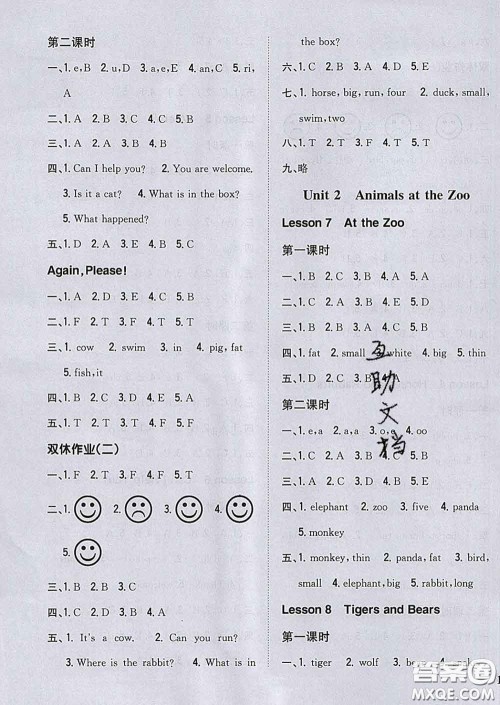 第二课时
一、1. e, B 2. u, D 3. a, e, E 4. an, C 5. ri,
A
二、1. B 2. B 3. C 4. C 5. C
三、1. T 2. T 3. F 4. F 5. T
四、1. Can I help you? 2. You are welcome.
3. Is it a cat? 4. What is in the box?
5. What happened?
五、1. D 2. A 3. E 4. C 5. B
Again, Please!
一、1. C 2. B 3. C 4. A 5. B
二、1. F 2. T 3. F 4. T 5. T
三、1. cow 2. swim 3. in 4. pig, fat
5. fish, it
四、1. C 2. A 3. A 4. B 5. C
五、1. A 2. D 3. B 4. E 5. C
双休作业(二)
一、1. F 2. T 3. F 4. T 5. T
二、1. 2. 3. 4.
5.
三、1. B 2. A 3. C
四、1. D 2. C 3. E 4. A 5. B
五、1. It's a cow. 2. Can you run?
3. Where is the rabbit? 4. What is in
the box?
六、1. B 2. C 3. A 4. D 5. E
七、1. horse, big, run, four 2. duck, small,
swim, two
八、1. F 2. F 3. T 4. F 5. T
九、略
Unit 2 Animals at the Zoo
Lesson 7 At the Zoo
第一课时
一、1. B 2. D 3. C 4. A
二、1. A 2. C 3. B 4. B 5. C
三、1. C 2. B 3. C 4. A 5. B
四、1. fat 2. small 3. white 4. big 5. thin
五、1. D 2. A 3. 4.
互助文档
第二课时
一、1. e, a 2. a, a 3. o, 4. oo
二、1. B 2. A 3. C
三、1. B 2. A 3. B 4. C 5. C
四、1. elephant 2. zoo 3. five 4. panda
5. monkey
五、1. monkey, thin 2. panda, fat 3. bird,
small 4. elephant, big 5. rabbit, long
Lesson 8 Tigers and Bears
第一课时
一、1. tiger 2. wolf 3. bear 4.
答案圈
MXQE.COM